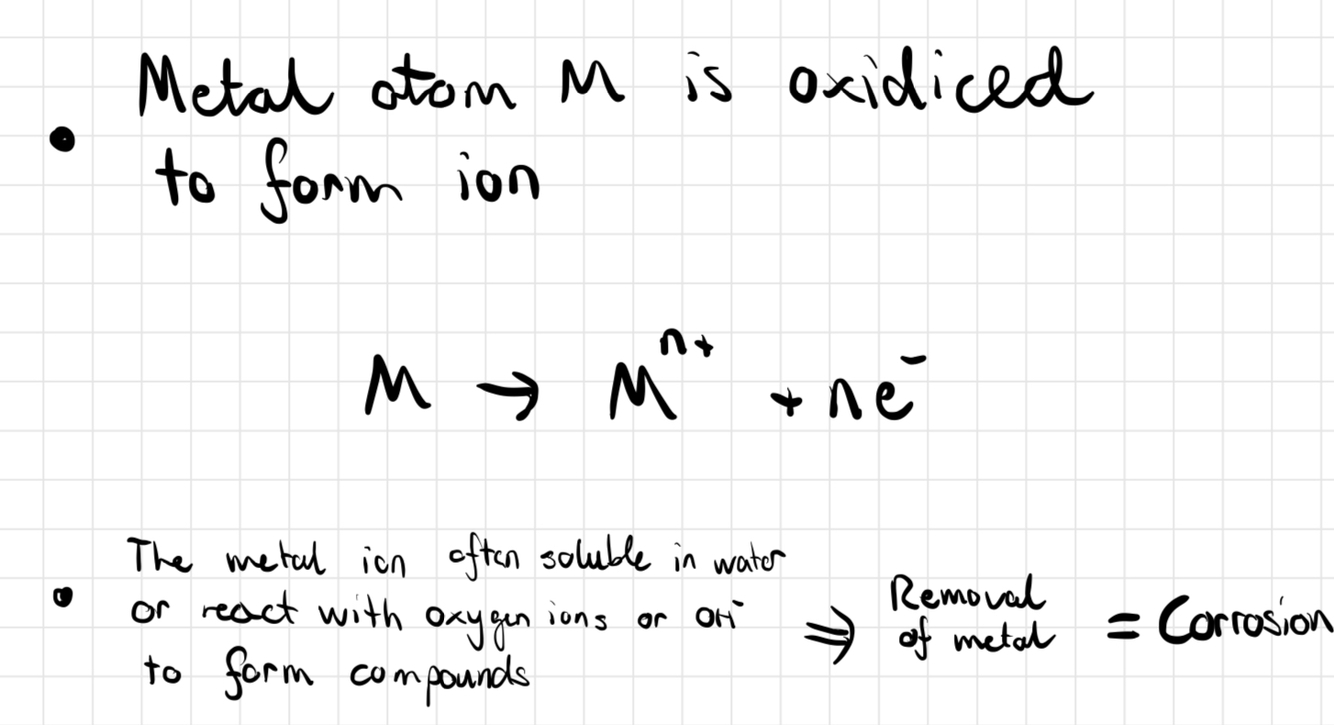 Metal atom M is oxidiced
• to form ion
M → Mⁿ⁺ + ne⁻
The metal ion often soluble in water
• or react with oxygen ions or OH⁻
to form compounds
⇒ Removal
of metal
= Corrosion